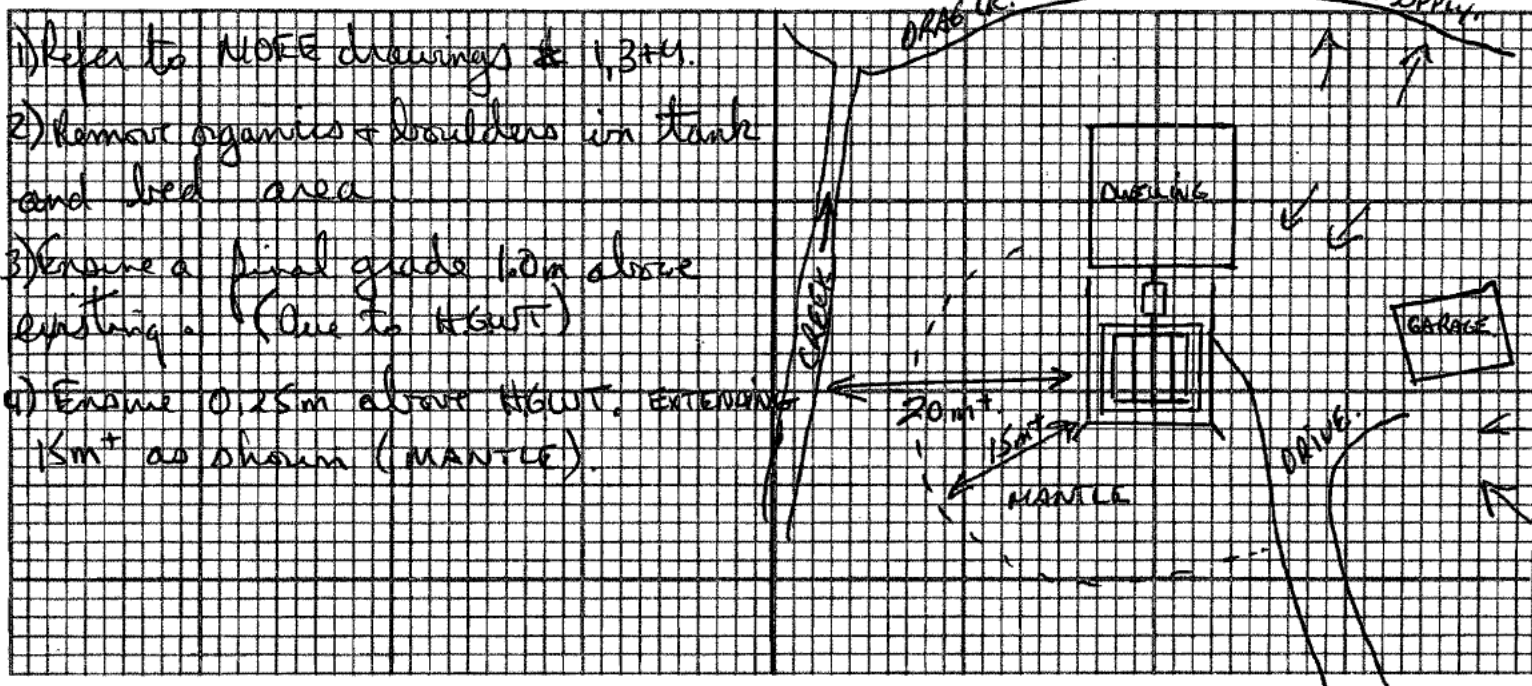 1) Refer to MOEE drawings # 1,3+4.
2) Remove organics + boulders in tank
and bed area
3) Ensure a final grade 1.0m above
existing. (Due to HGWT)
4) Ensure 0.25m above HGWT. EXTENDING
15m+ as shown (MANTLE).
DRAG LK.
DWELLING
CREEK
GARAGE
20m+.
15m+
MANTLE
DRIVE.